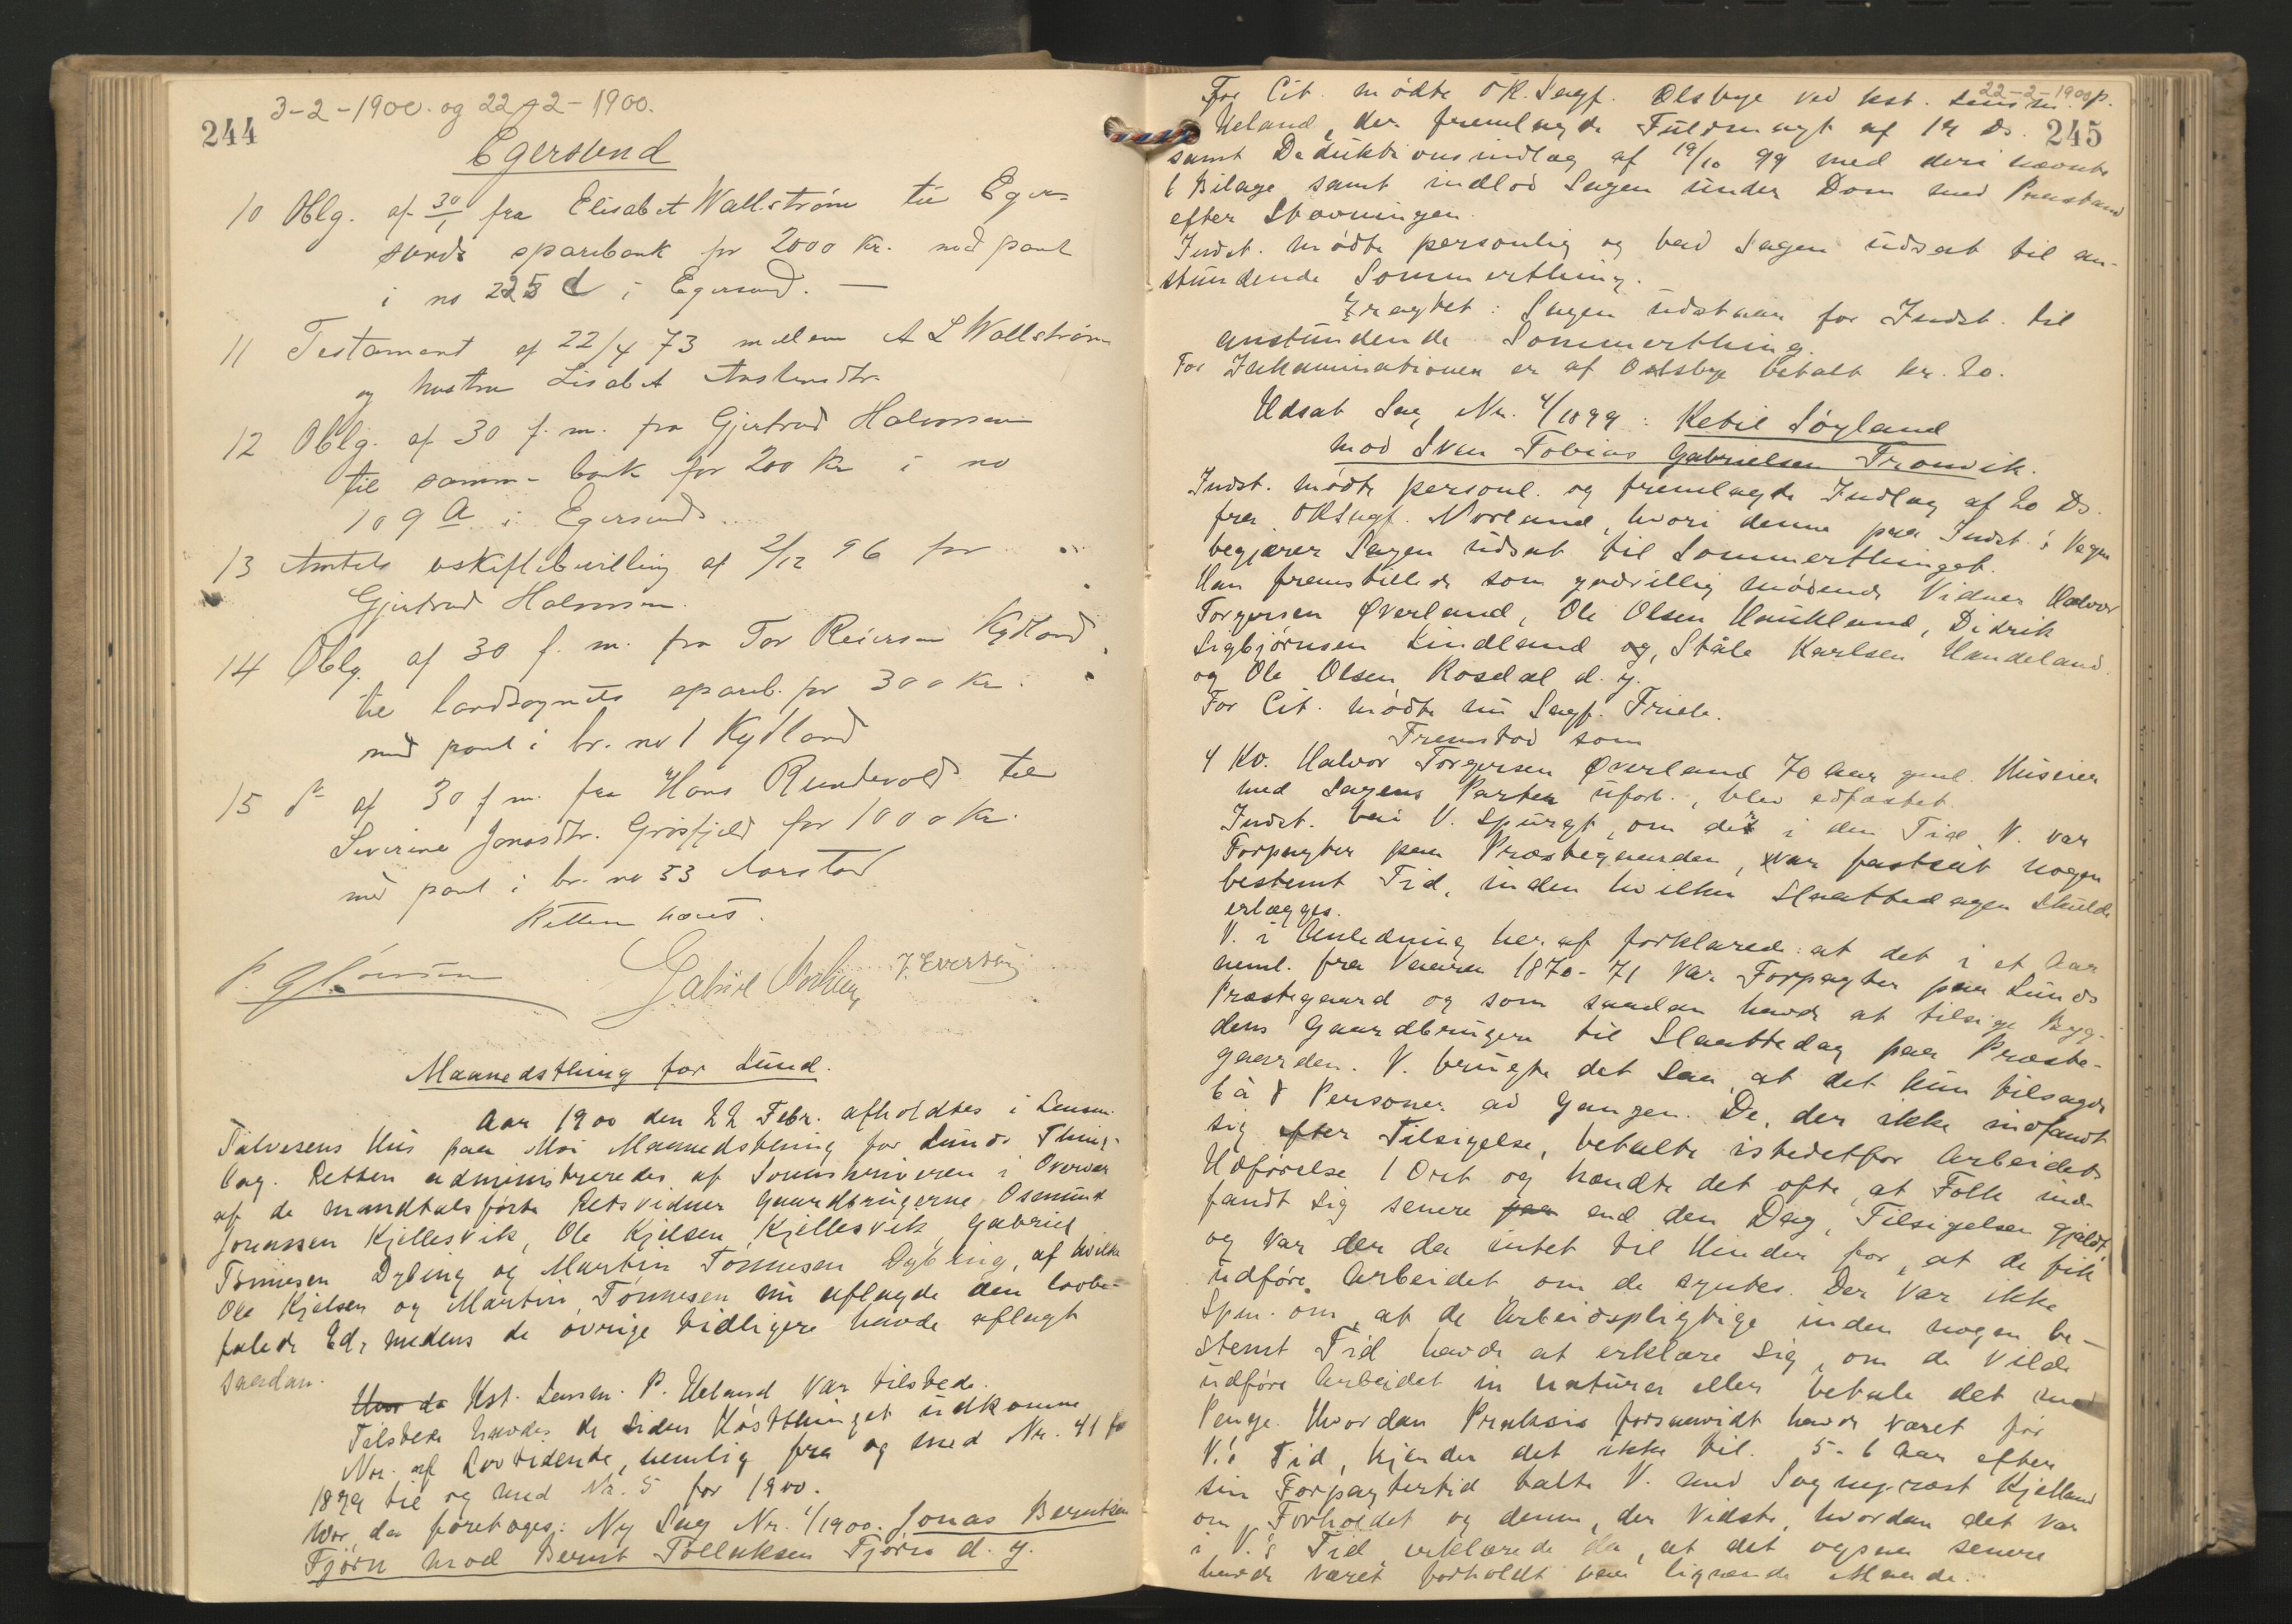 244
3-2-1900. og 22-2-1900.
Egersund
10 Oblg. af 30/1 fra Elisabet Wallstrøm til Eger-
sunds sparebank for 2000 Kr. med pant
i no 225 d i Egersund. —
11 Testament af 22/4 73 mellem A L Wallstrøm
og hustru Lisabet Aslaksdtr.
12 Oblg. af 30 f. m. fra Gjertrud Halvorsen
til samm- bank for 200 Kr i no
109 A i Egersund.
13 Amtets uskiftebevilling af 2/12 96 for
Gjertrud Halvorsen.
14 Oblg. af 30 f. m. fra Tor Reiersen Kydland
til landsognets spareb. for 300 Kr.
med pant i br. no 1 Kydland
15 do af 30 f m. fra Hans Rundevold til
Severine Jonasdtr. Grøsfjeld for 1000 Kr.
med pant i br. no 33 Aarstad
Retten hævet.
Gabriel
Maanedsthing for Lund.
Aar 1900 den 22 Febr. afholdtes i Lensm.
Talversens Hus paa Moi Maanedsthing for Lunds Thing-
lag. Retten administreredes af Sorenskriveren i Overvær
af de mandtalsførte Retsvidner Gaardbrugerne Osmund
Jonassen Kjellesvik, Ole Kjelsen Kjellesvik, Gabriel
Tønnesen Dybing og Martin Tønnesen Dybing, af hvilke
Ole Kjelsen og Martin Tønnesen nu aflagde den lovbe-
falede Ed, medens de øvrige tidligere havde aflagt
saadan.
Hvor da Kst. Lensm. P. Ueland var tilstede.
Tilstede havdes de siden Høstthinget udkomne
Nr. af Lovtidende, nemlig fra og med Nr. 41 for
1899 til og med Nr. 5 for 1900.
Hvor da foretoges: Ny Sag Nr. 1/1900. Jonas Berntsen
Tjørn mod Bernt Tollaksen Tjørn d. y.
22-2-1900
245
For Cit. mødte OR. Sagf. Olsbye ved kst. Lensm. P.
Ueland, der fremlagde Fuldmagt af 19 ds.
samt Deduktionsindlæg af 19/10 99 med deri nævnte
6 Bilage samt indlod Sagen under Dom med Paastand
efter Stævningen.
Indst. mødte personlig og bad Sagen udsat til an-
stundende Sommerthing.
Eragtet: Sagen udstaar for Indst. til
anstundende Sommerthing.
For Inkaminationen er af Olsbye betalt kr. 20.
Udsat Sag Nr. 4/1899: Ketil Søyland
mod Sven Tobias Gabrielsen Tronvik.
Indst. mødte personl. og fremlagde Indlæg af 20 Ds.
fra ORSagf. Mørland, hvori denne paa Indst.'s Vegne
begjærer Sagen udsat til Sommerthinget.
Han fremstillede som godvillig mødende Vidner Halvor
Torgersen Øverland, Ole Olsen Haukland, Didrik
Sigbjørnsen Lindland og, Ståle Karlsen Handeland
og Ole Olsen Rosdal d. y.
For Cit. mødte nu Sagf. Friele.
Fremstod som
4 Kv. Halvor Torgersen Øverland 70 Aar gml. Huseier
med Sagens Parter uforb., blev edfæstet.
Indst. bad V. spurgt, om der i den Tid V. var
Forpagter paa Præstegaarden, var fastsat nogen
bestemt Tid, inden hvilken Slaattedagen skulde
erlægges.
V. i Anledning heraf forklarede: at det i et Aar
neml. fra Vaaren 1870-71 var Forpagter paa Lunds
Præstegaard og som saadan havde at tilsige Byg-
dens Gaardbrugere til Slaattedag paa Præste-
gaarden. V. brugte det saa, at det kun tilsagde
6 à 8 Personer ad Gangen. De, der ikke indfandt
sig efter Tilsigelse, betalte istedetfor Arbeidets
Udførelse 1 Ort og hændte det ofte, at Folk ind-
fandt sig senere paa end den Dag, Tilsigelsen gjaldt,
og var der da intet til Hinder for, at de fik
udføre Arbeidet om de syntes. Der var ikke
Spm. om, at de Arbeidspligtige inden nogen be-
stemt Tid havde at erklære sig, om de vilde
udføre Arbeidet in natura eller betale det med
Penge. Hvordan Praksis forsaavidt havde været før
V.'s Tid, kjender det ikke til. 5-6 Aar efter
sin Forpagtertid talte V. med Sogneprest Kjelland
om Forholdet og denne, der vidste, hvordan det var
i V.'s Tid erklærede da, at det ogsaa senere
havde været forholdt paa lignende Maade.